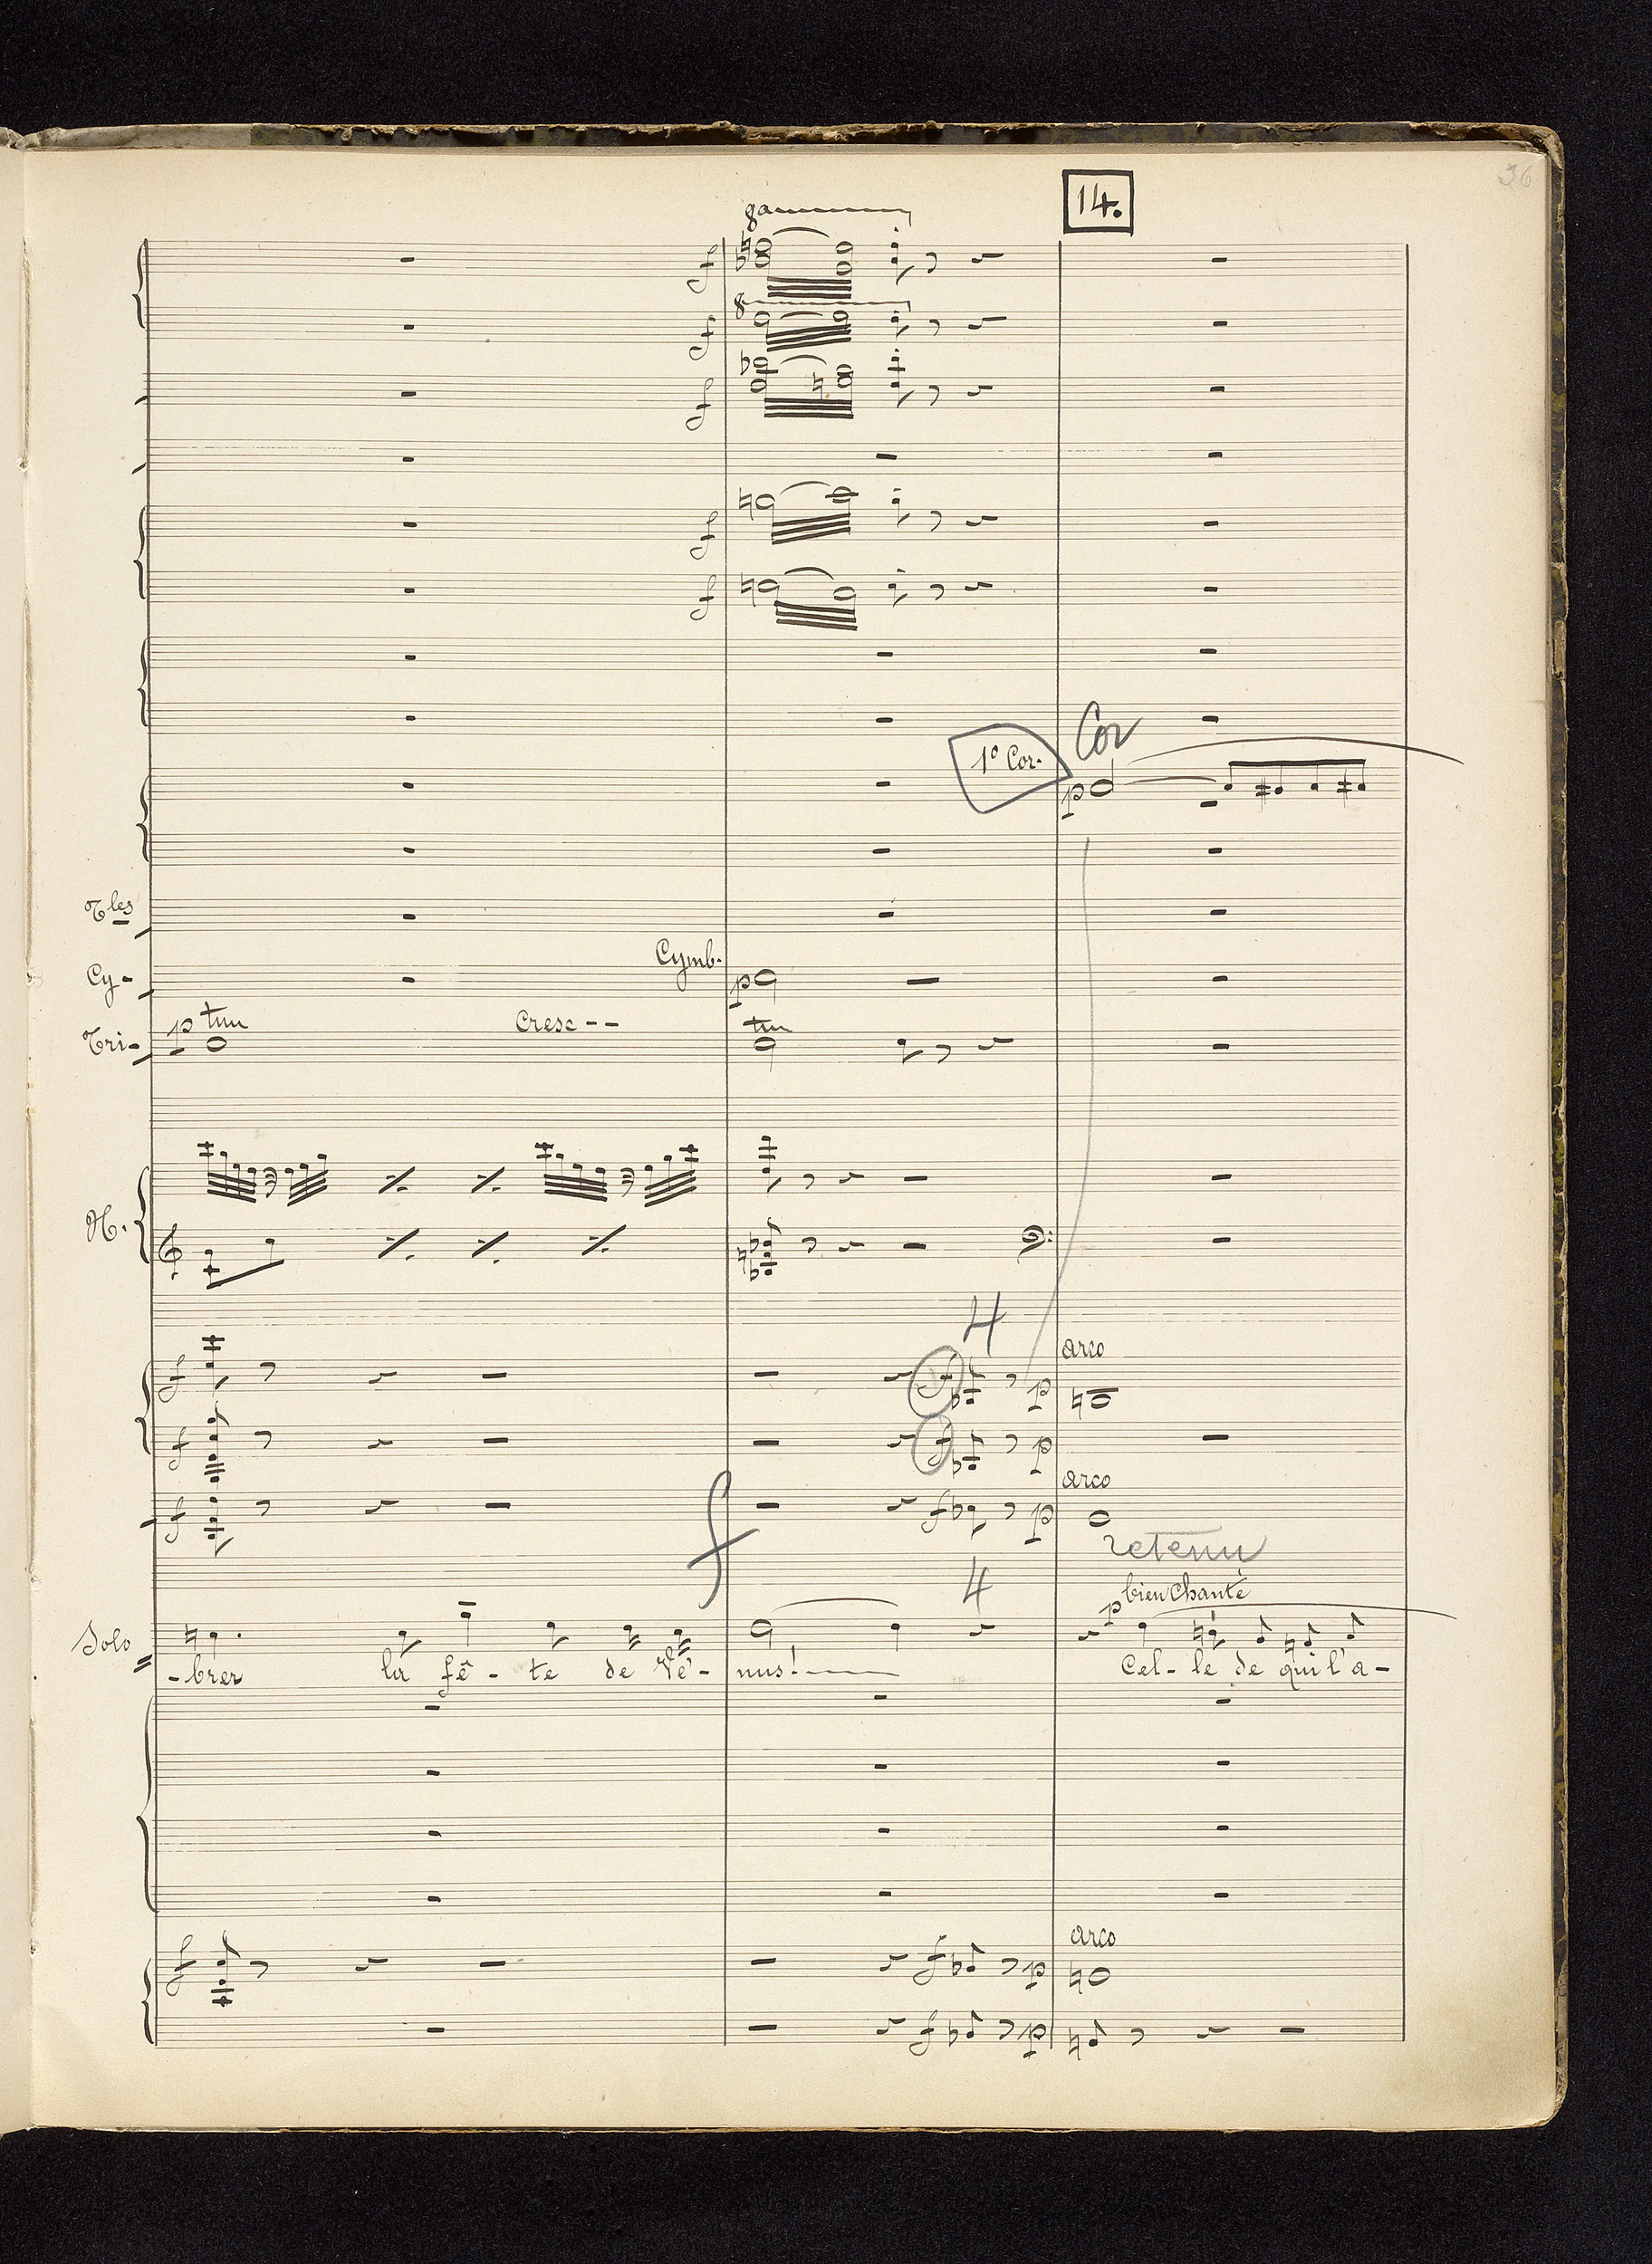 36
14.
8a
f
8
f
f
f
f
Cor
1º Cor.
p
Tles
Cymb.
Cy-
p
p
tr
Cresc--
tr
Tri-
H.
4
arco
f
f
p
f
f
p
arco
f
f
p
f
retenu
4
bien chanté
p
Solo
-brer la fê-te de Vé-nus! Cel-le de qui l'a-
arco
f
f
p
f
p